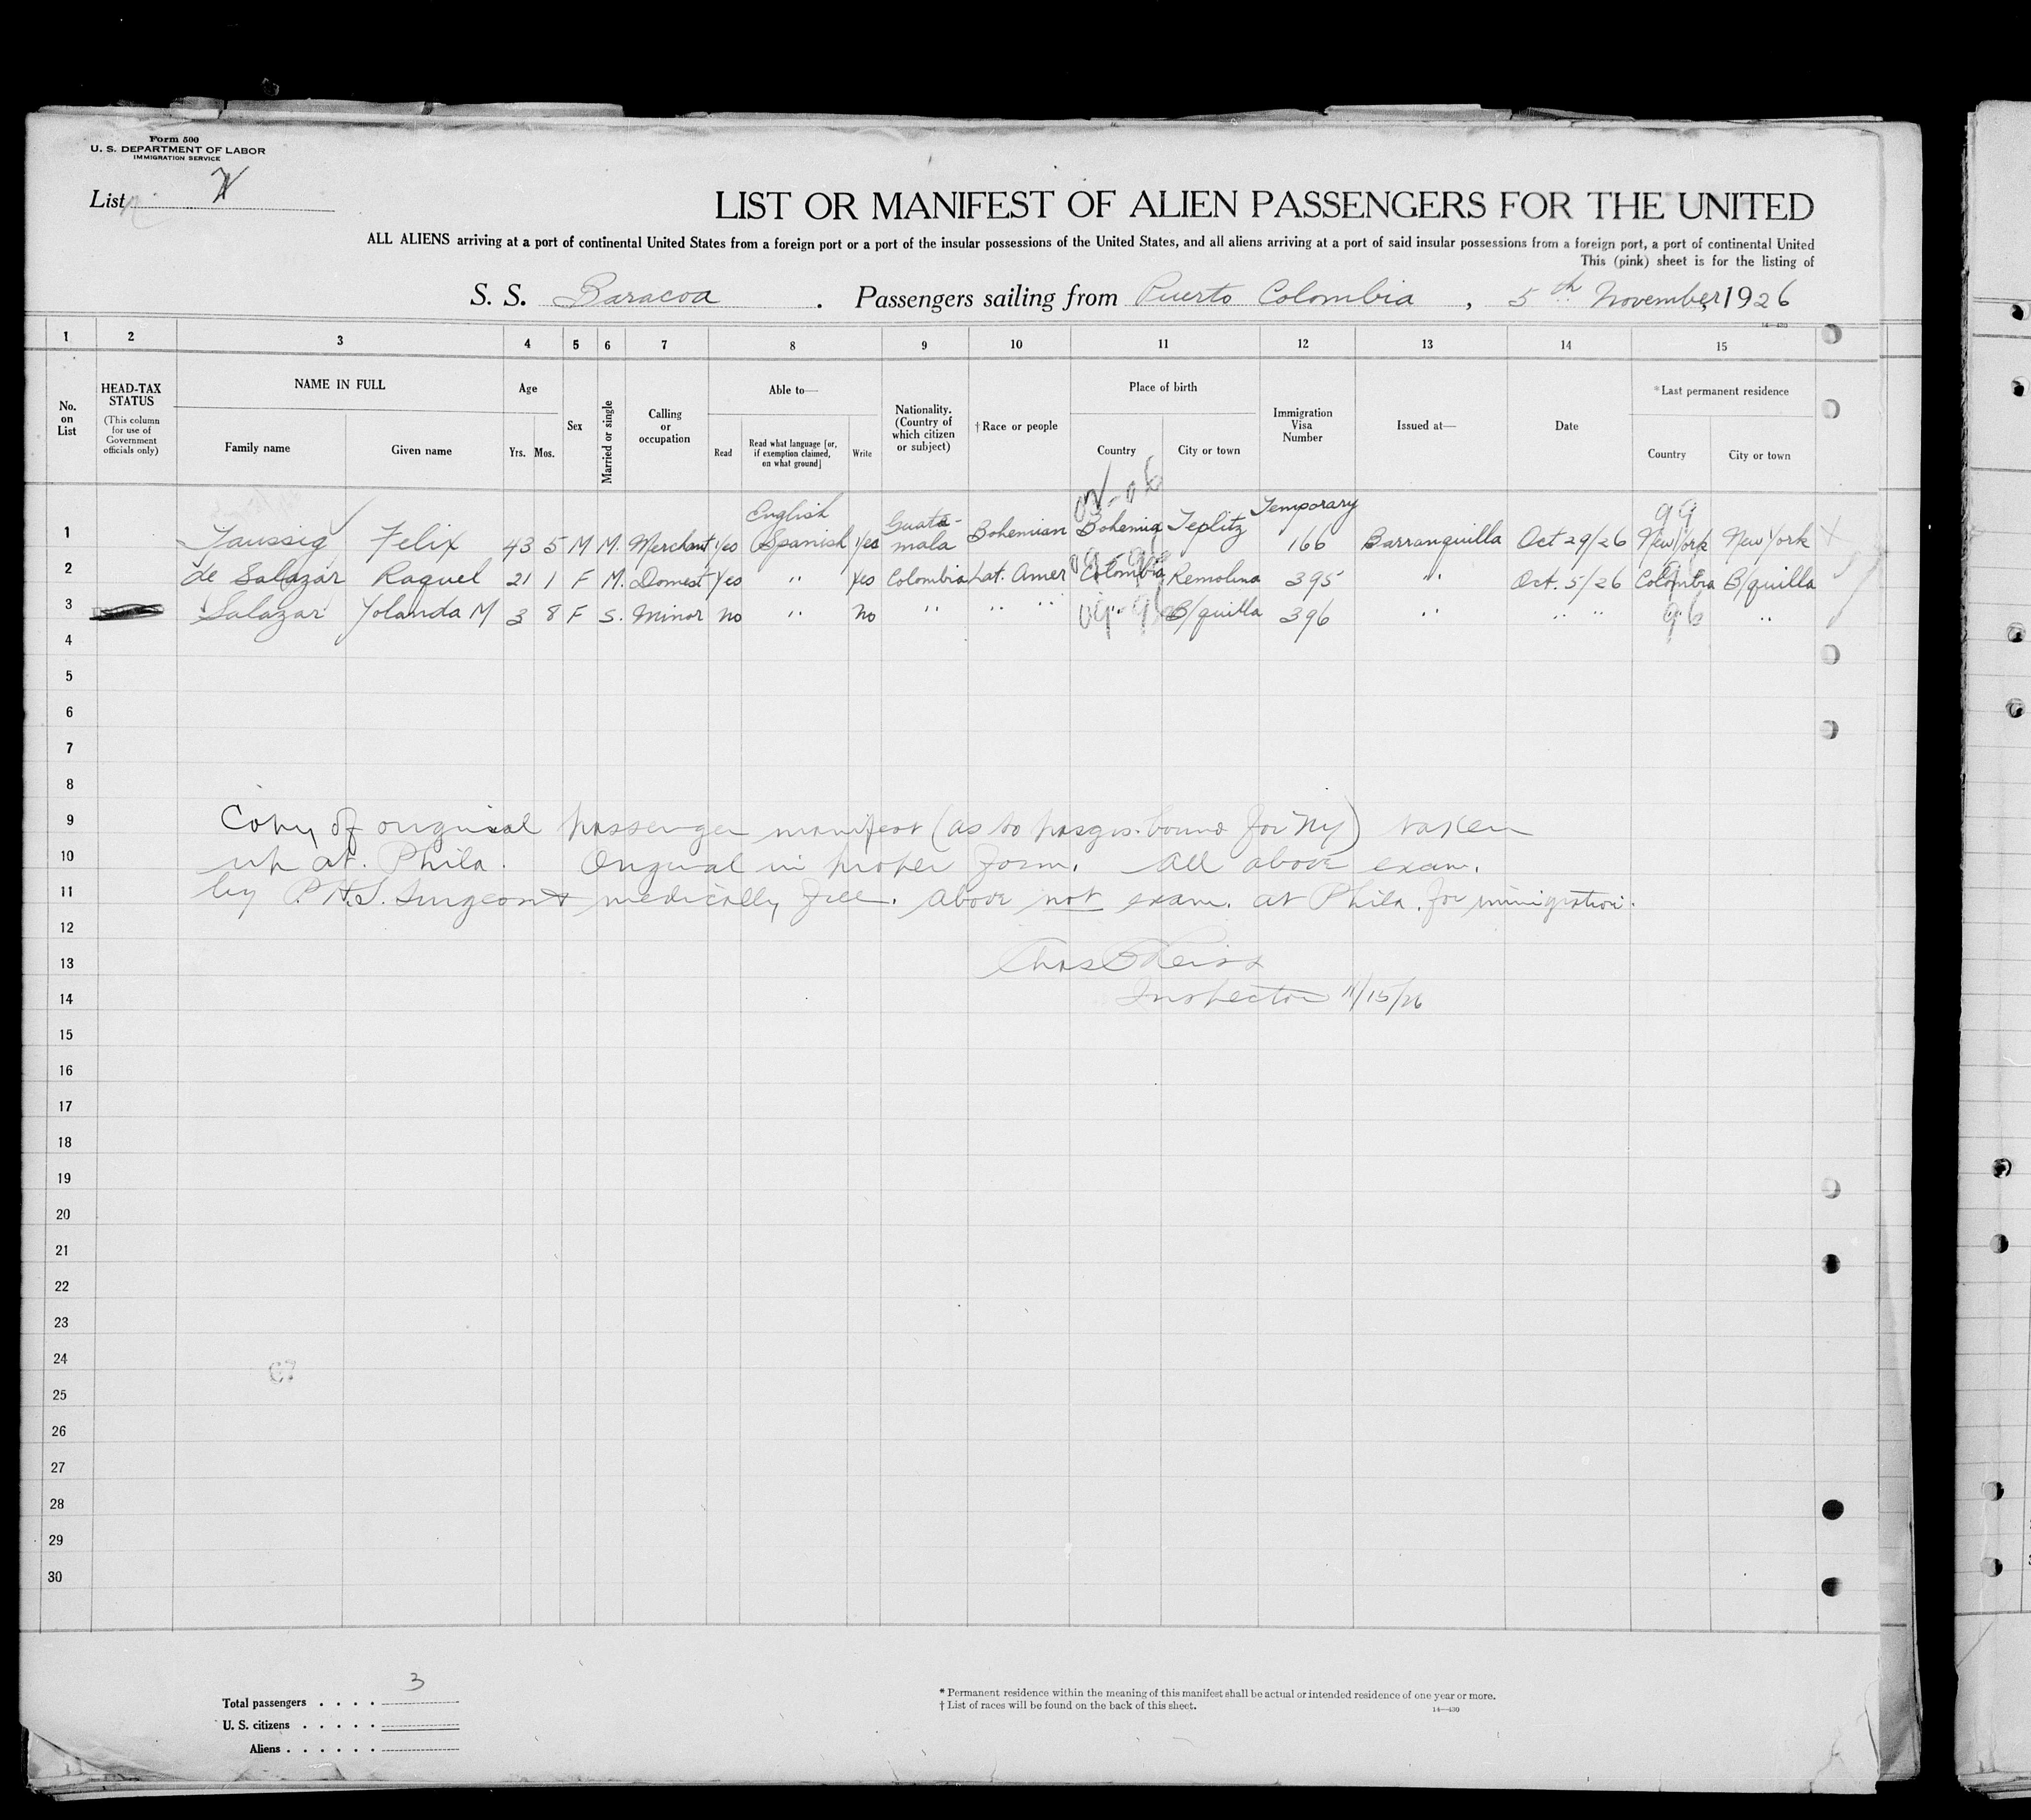 Form 500
U. S. DEPARTMENT OF LABOR
IMMIGRATION SERVICE
List
LIST OR MANIFEST OF ALIEN PASSENGERS FOR THE UNITED
ALL ALIENS arriving at a port of continental United States from a foreign port or a port of the insular possessions of the United States, and all aliens arriving at a port of said insular possessions from a foreign port, a port of continental United
This (pink) sheet is for the listing of
S. S. Baracoa . Passengers sailing from Puerto Colombia , 5th November, 1926
14—430
1 2 3 4 5 6 7 8 9 10 11 12 13 14 15
No. on List
HEAD-TAX STATUS
(This column for use of Government officials only)
NAME IN FULL
Family name
Given name
Age
Yrs. Mos.
Sex
Married or single
Calling or occupation
Able to—
Read
Read what language [or, if exemption claimed, on what ground]
Write
Nationality. (Country of which citizen or subject)
†Race or people
Place of birth
Country
City or town
Immigration Visa Number
Issued at—
Date
*Last permanent residence
Country
City or town
1 Taussig Felix 43 5 M M. Merchant Yes English Spanish Yes Guate-mala Bohemian Bohemia Teplitz Temporary 166 Barranquilla Oct 29/26 99 New York New York
2 de Salazar Raquel 21 1 F M. Domest Yes " Yes Colombia Lat. Amer Colombia Remolina 395 " Oct. 5/26 Colombia B/quilla
3 Salazar Yolanda M 3 8 F S. Minor no " no " " " B/quilla 396 " " " 96 "
4
5
6
7
8
9 Copy of original passenger manifest (as to pasgrs. bound for NY) taken
10 up at Phila. Original in proper form. All above exam.
11 by P.H.S. Surgeon & medically free. Above not exam. at Phila. for immigration.
12
13 Chas
14 Inspector 11/15/26
15
16
17
18
19
20
21
22
23
24
25
26
27
28
29
30
Total passengers . . . . 3
U. S. citizens . . . . .
Aliens . . . . . .
* Permanent residence within the meaning of this manifest shall be actual or intended residence of one year or more.
† List of races will be found on the back of this sheet.
14—430